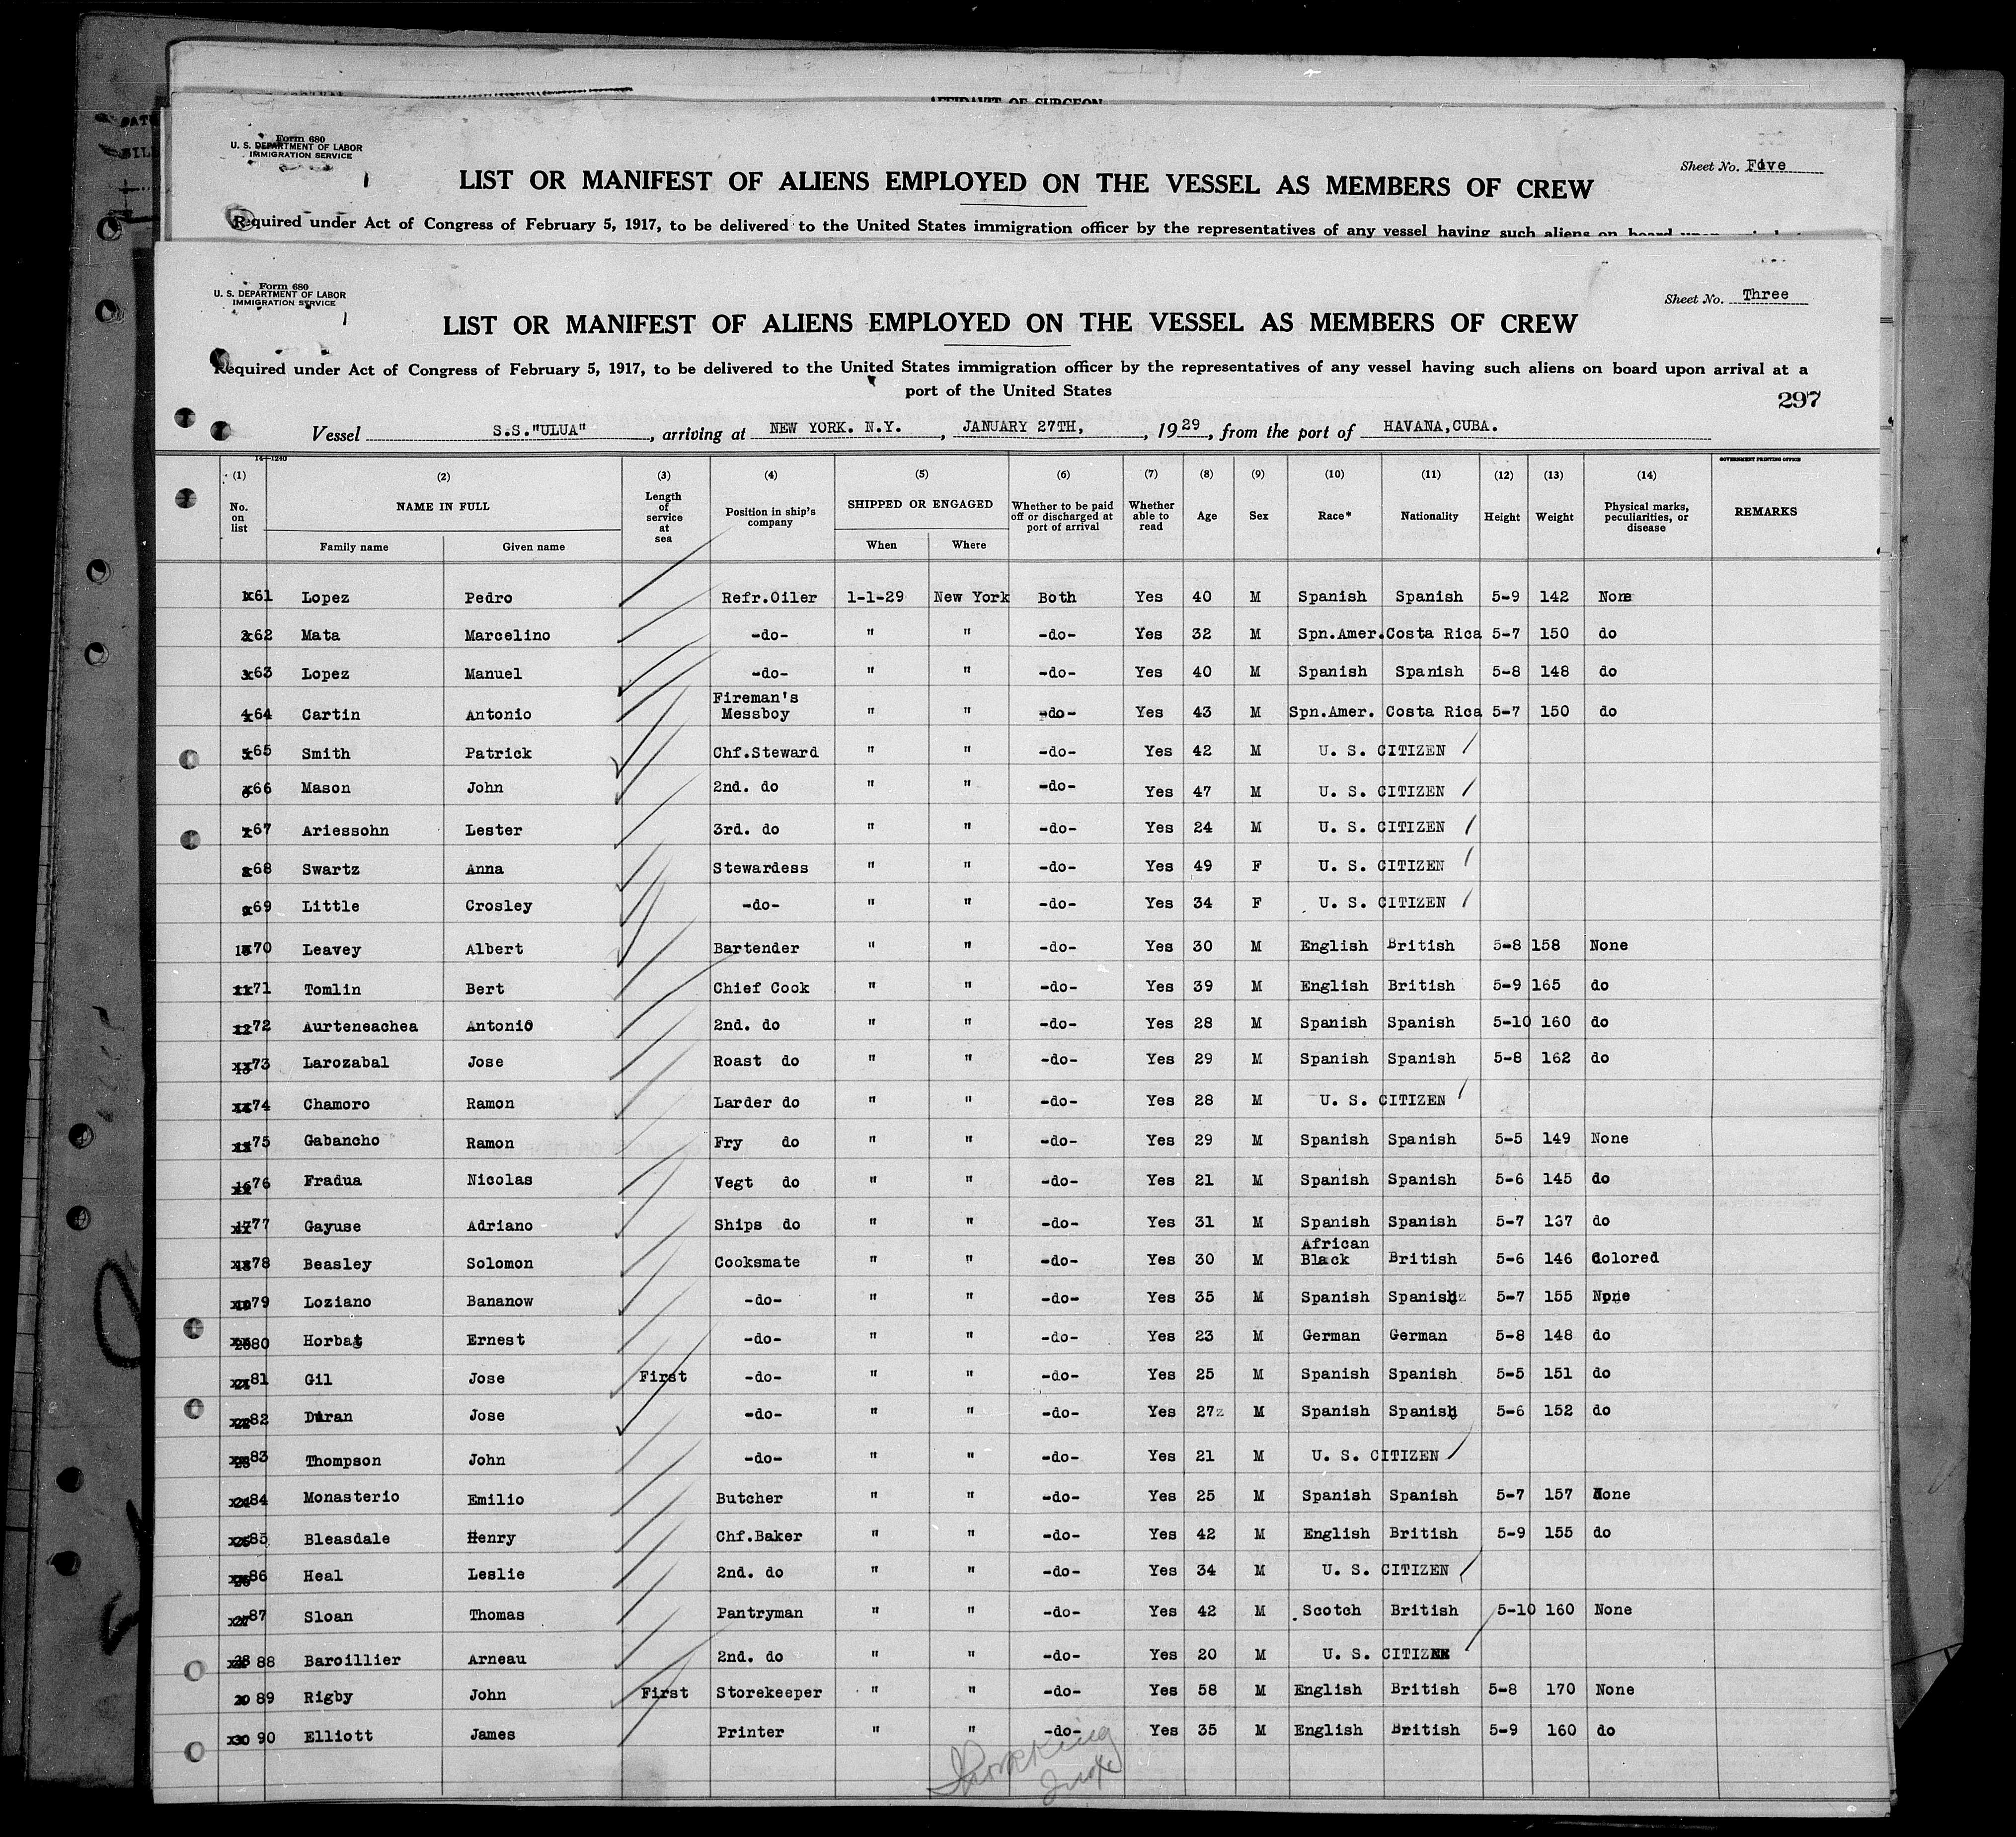 AFFIDAVIT OF SURGEON
Form 680
U. S. DEPARTMENT OF LABOR
IMMIGRATION SERVICE
Sheet No. Five
LIST OR MANIFEST OF ALIENS EMPLOYED ON THE VESSEL AS MEMBERS OF CREW
Required under Act of Congress of February 5, 1917, to be delivered to the United States immigration officer by the representatives of any vessel having such aliens on board upon
Form 680
U. S. DEPARTMENT OF LABOR
IMMIGRATION SERVICE
Sheet No. Three
LIST OR MANIFEST OF ALIENS EMPLOYED ON THE VESSEL AS MEMBERS OF CREW
Required under Act of Congress of February 5, 1917, to be delivered to the United States immigration officer by the representatives of any vessel having such aliens on board upon arrival at a
port of the United States
297
Vessel S.S."ULUA", arriving at NEW YORK. N.Y., JANUARY 27TH, 1929, from the port of HAVANA,CUBA.
14—1240
GOVERNMENT PRINTING OFFICE
(1) (2) (3) (4) (5) (6) (7) (8) (9) (10) (11) (12) (13) (14)
No. on list NAME IN FULL Length of service at sea Position in ship's company SHIPPED OR ENGAGED Whether to be paid off or discharged at port of arrival Whether able to read Age Sex Race* Nationality Height Weight Physical marks, peculiarities, or disease REMARKS
Family name Given name When Where
61 Lopez Pedro Refr.Oiler 1-1-29 New York Both Yes 40 M Spanish Spanish 5-9 142 None
62 Mata Marcelino -do- " " -do- Yes 32 M Spn.Amer. Costa Rica 5-7 150 do
63 Lopez Manuel -do- " " -do- Yes 40 M Spanish Spanish 5-8 148 do
64 Cartin Antonio Fireman's Messboy " " -do- Yes 43 M Spn.Amer. Costa Rica 5-7 150 do
65 Smith Patrick Chf.Steward " " -do- Yes 42 M U. S. CITIZEN
66 Mason John 2nd. do " " -do- Yes 47 M U. S. CITIZEN
67 Ariessohn Lester 3rd. do " " -do- Yes 24 M U. S. CITIZEN
68 Swartz Anna Stewardess " " -do- Yes 49 F U. S. CITIZEN
69 Little Crosley -do- " " -do- Yes 34 F U. S. CITIZEN
70 Leavey Albert Bartender " " -do- Yes 30 M English British 5-8 158 None
71 Tomlin Bert Chief Cook " " -do- Yes 39 M English British 5-9 165 do
72 Aurteneachea Antonio 2nd. do " " -do- Yes 28 M Spanish Spanish 5-10 160 do
73 Larozabal Jose Roast do " " -do- Yes 29 M Spanish Spanish 5-8 162 do
74 Chamoro Ramon Larder do " " -do- Yes 28 M U. S. CITIZEN
75 Gabancho Ramon Fry do " " -do- Yes 29 M Spanish Spanish 5-5 149 None
76 Fradua Nicolas Vegt do " " -do- Yes 21 M Spanish Spanish 5-6 145 do
77 Gayuse Adriano Ships do " " -do- Yes 31 M Spanish Spanish 5-7 137 do
78 Beasley Solomon Cooksmate " " -do- Yes 30 M African Black British 5-6 146 Colored
79 Loziano Bananow -do- " " -do- Yes 35 M Spanish Spanish 5-7 155 None
80 Horbat Ernest -do- " " -do- Yes 23 M German German 5-8 148 do
81 Gil Jose First -do- " " -do- Yes 25 M Spanish Spanish 5-5 151 do
82 Duran Jose -do- " " -do- Yes 27 M Spanish Spanish 5-6 152 do
83 Thompson John -do- " " -do- Yes 21 M U. S. CITIZEN
84 Monasterio Emilio Butcher " " -do- Yes 25 M Spanish Spanish 5-7 157 None
85 Bleasdale Henry Chf.Baker " " -do- Yes 42 M English British 5-9 155 do
86 Heal Leslie 2nd. do " " -do- Yes 34 M U. S. CITIZEN
87 Sloan Thomas Pantryman " " -do- Yes 42 M Scotch British 5-10 160 None
88 Baroillier Arneau 2nd. do " " -do- Yes 20 M U. S. CITIZEN
89 Rigby John First Storekeeper " " -do- Yes 58 M English British 5-8 170 None
90 Elliott James Printer " " -do- Yes 35 M English British 5-9 160 do